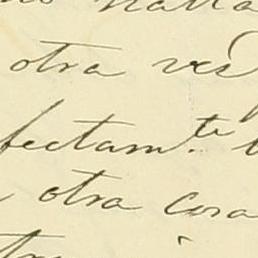 otra vez
fectam.te
otra cosa